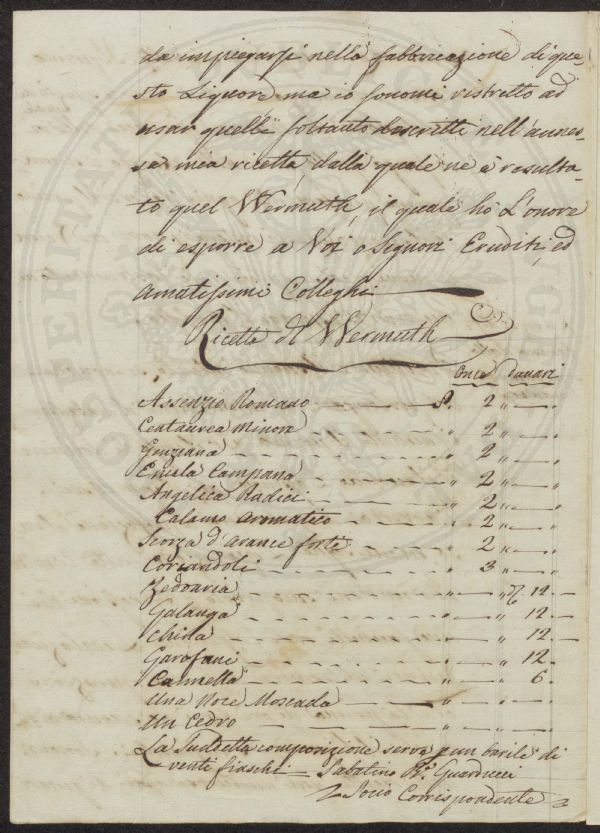 da impiegarsi nella fabbricazione di que-
sto Liquore ma io sonomi ristretto ad
usar quelli soltanto descritti nell'annes-
sa mia ricetta, dalla quale ne è resulta-
to quel Wermuth, il quale hò L'onore
di esporre a Voi o Signori Eruditi, ed
amatissimi Colleghi
Ricetta di Wermuth
Once danari
Assenzio Romano 2 „ — „
Centaurea Minore „ 2 „ — „
Genziana „ 2 „ — „
Enula Campana „ 2 „ — „
Angelica Radici „ 2 „ — „
Calamo Aromatico „ 2 „ — „
Scorza d'arance forti „ 2 „ — „
Coriandoli „ 3 „ — „
Zedoaria „ — „ 12 —
Galanga „ — „ 12 —
China „ — „ 12 —
Garofani „ — „ 12.
Cannella „ — „ 6.
Una Noce Moscada „ — „
Un Cedro „ — „
La Suddetta composizione serve p un barile di
venti fiaschi = Sabatino Guarducci
Socio Corrispondente